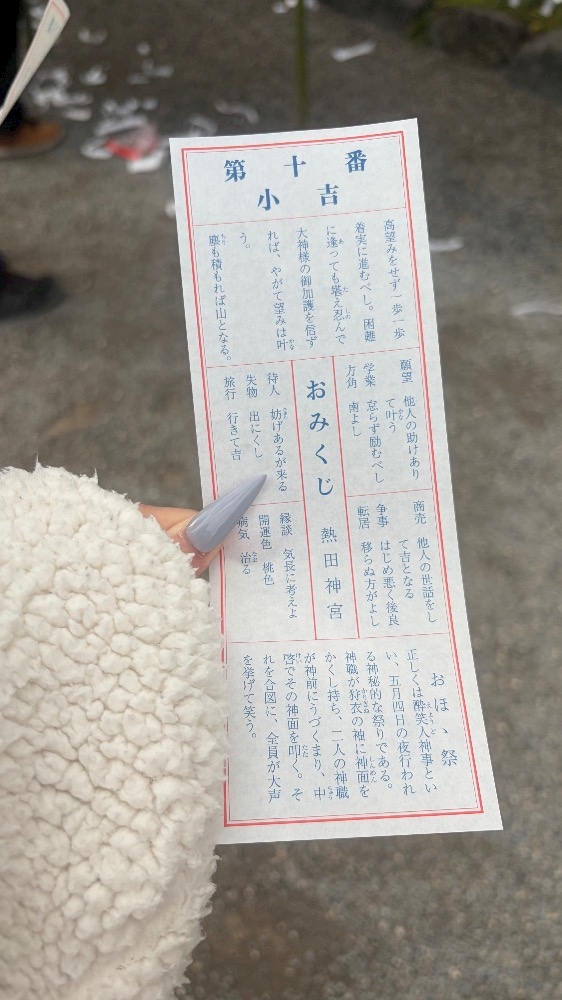 第十番
小吉
高望みをせず一歩一歩
着実に進むべし。困難
に逢っても堪え忍んで
大神様の御加護を信ず
れば、やがて望みは叶
う。
塵も積もれば山となる。
願望 他人の助けあり
て叶う
学業 怠らず励むべし
方角 南よし
商売 他人の世話をし
て吉となる
争事 はじめ悪く後良
転居 移らぬ方がよし
おみくじ 熱田神宮
待人 妨げあるが来る
失物 出にくし
旅行 行きて吉
縁談 気長に考えよ
開運色 桃色
病気 治る
おほゝ祭
正しくは酔笑人神事とい
い、五月四日の夜行われ
る神秘的な祭りである。
神職が狩衣の袖に神面を
かくし持ち、二人の神職
が神前にうづくまり、中
啓でその神面を叩く。そ
れを合図に、全員が大声
を挙げて笑う。